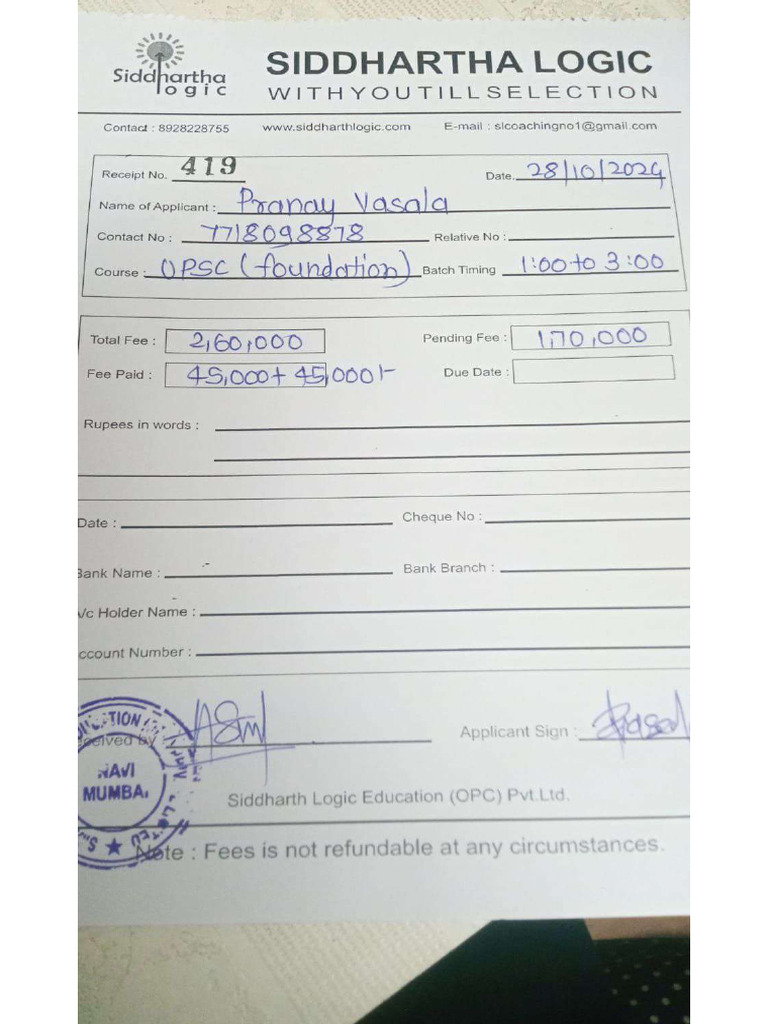 Siddhartha
logic
SIDDHARTHA LOGIC
WITH YOU TILL SELECTION
Contact : 8928228755 www.siddharthlogic.com E-mail : slcoachingno1@gmail.com
Receipt No. 419 Date. 28/10/2024
Name of Applicant : Pranay Vasala
Contact No : 7718098878 Relative No :
Course : UPSC (foundation) Batch Timing 1:00 to 3:00
Total Fee : 2,60,000 Pending Fee : 1,70,000
Fee Paid : 45,000 + 45,000/- Due Date :
Rupees in words :
Date : Cheque No :
Bank Name : Bank Branch :
/c Holder Name :
ccount Number :
ceived by Applicant Sign :
NAVI
MUMBAI
Siddharth Logic Education (OPC) Pvt.Ltd.
Note : Fees is not refundable at any circumstances.